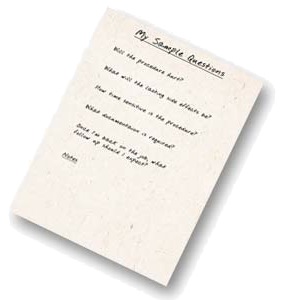 My Sample Questions
Will the procedure hurt?
What will the lasting side effects be?
How time sensitive is the procedure?
What documentation is required?
Once I'm back on the job, what
follow up should I expect?
Notes